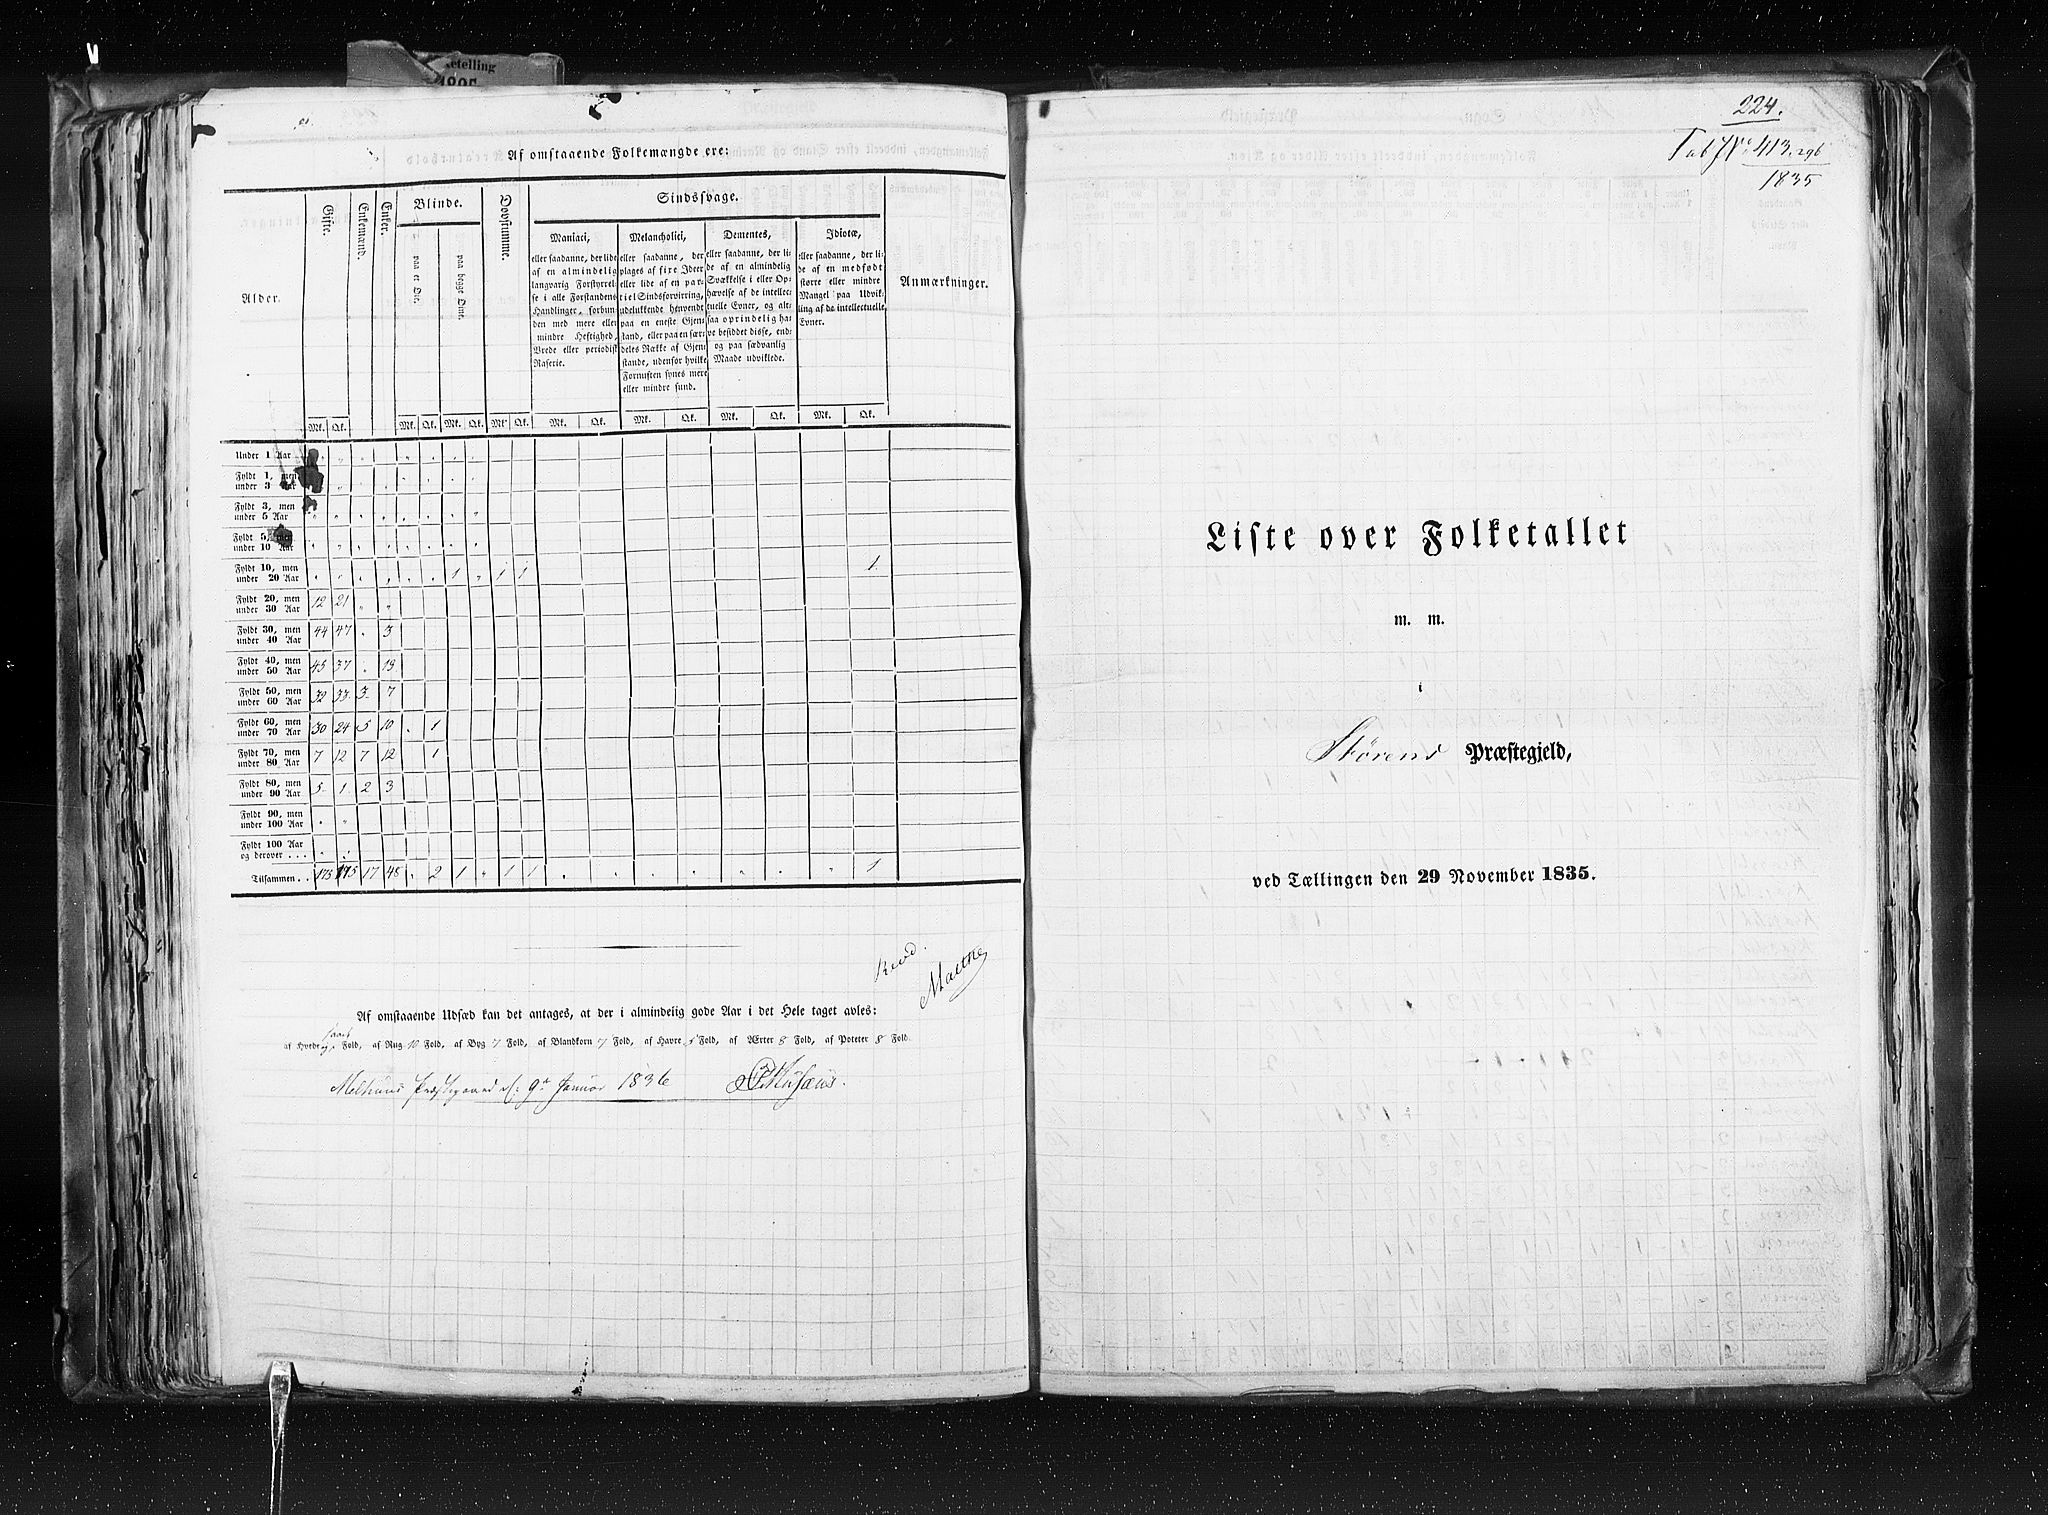 ketelling
1835
Af omstaaende Folkemængde ere:
Alder.
Gifte.
Enkemænd.
Enker.
Blinde.
paa et Øie.
paa begge Øine.
Døvstumme.
Sindssvage.
Maniaci,
eller saadanne, der lide
af en almindelig
langvarig Forstyrrel-
se i alle Forstandens
Handlinger, forbun-
den med mere eller
mindre Heftighed,
Vrede eller periodisk
Raserie.
Melancholici,
eller saadanne, der
plages af fixe Ideer
eller lide af en par-
tiel Sindsforvirring,
udelukkende henvendt
paa en eneste Gjen-
stand, eller paa en sær-
deles Række af Gjen-
stande, udenfor hvilke
Fornuften synes mere
eller mindre sund.
Dementes,
eller saadanne, der li-
de af en almindelig
Svækkelse i eller Op-
hævelse af de intellec-
tuelle Evner, og alt-
saa oprindelig ha-
ve besiddet disse, end-
og paa sædvanlig
Maade udviklede.
Idiotæ,
eller saadanne, der li-
de af en medfødt
større eller mindre
Mangel paa Udvik-
ling af de intellectuelle
Evner.
Anmærkninger.
Mk. Qk. Mk. Qk. Mk. Qk. Mk. Qk. Mk. Qk. Mk. Qk. Mk. Qk. Mk. Qk.
Under 1 Aar
Fyldt 1, men
under 3 Aar
Fyldt 3, men
under 5 Aar
Fyldt 5, men
under 10 Aar
Fyldt 10, men
under 20 Aar 1 " 1 1 1
Fyldt 20, men
under 30 Aar 12 21 " "
Fyldt 30, men
under 40 Aar 44 47 " 3
Fyldt 40, men
under 50 Aar 45 37 " 13
Fyldt 50, men
under 60 Aar 32 33 3 7
Fyldt 60, men
under 70 Aar 30 24 5 10 " 1
Fyldt 70, men
under 80 Aar 7 12 7 12 1
Fyldt 80, men
under 90 Aar 5 1 2 3
Fyldt 90, men
under 100 Aar
Fyldt 100 Aar
og derover . . .
Tilsammen . . 173 175 17 48 " 2 1 " 1 1 " " " " " " " 1
Revd.
Malthe
Af omstaaende Udsæd kan det antages, at der i almindelig gode Aar i det Hele taget avles:
af Hvede Fold, af Rug 10 Fold, af Byg 7 Fold, af Blandkorn 7 Fold, af Havre 5 Fold, af Ærter 8 Fold, af Poteter 8 Fold.
Melhuus Præstegaard d: 9de Januar 1836
224.
Tab No 413.296
1835
Liste over Folketallet
m. m.
i
Størens Præstegjeld,
ved Tællingen den 29 November 1835.